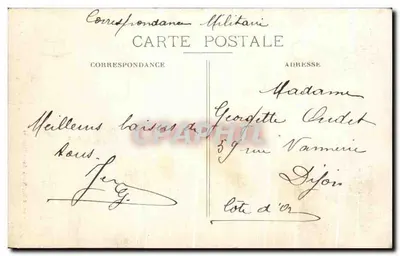 Correspondance Militaire
CARTE POSTALE
CORRESPONDANCE
ADRESSE
Meilleurs baisers de
tous.
Madame
Georgette Oudet
59 rue Vannerie
Dijon
Côte d'Or